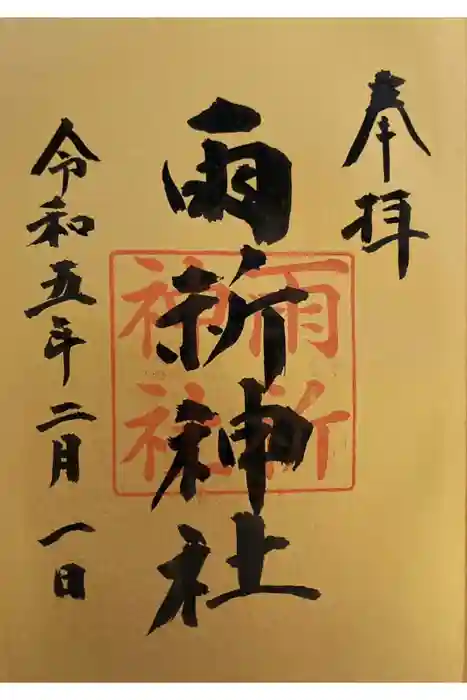 奉拝
雨祈神社
雨祈
神社
令和五年二月一日